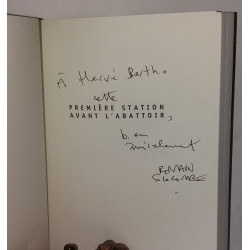 À Hervé Bertho
cette
PREMIÈRE STATION
AVANT L'ABATTOIR,
bien
amicalement
ROMAIN
SLOCOMBE